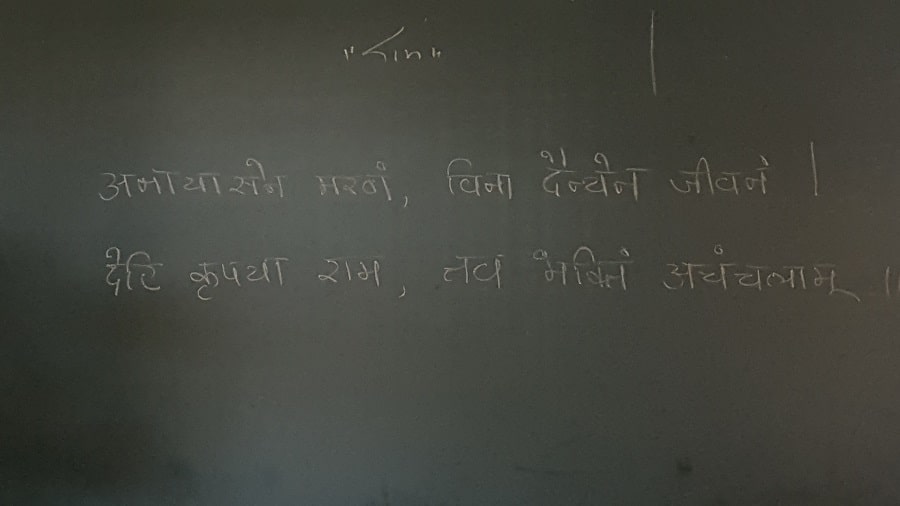 अनायासेन मरणं, विना दैन्येन जीवनं |
देहि कृपया राम, तव भक्तिं अचंचलाम् ||